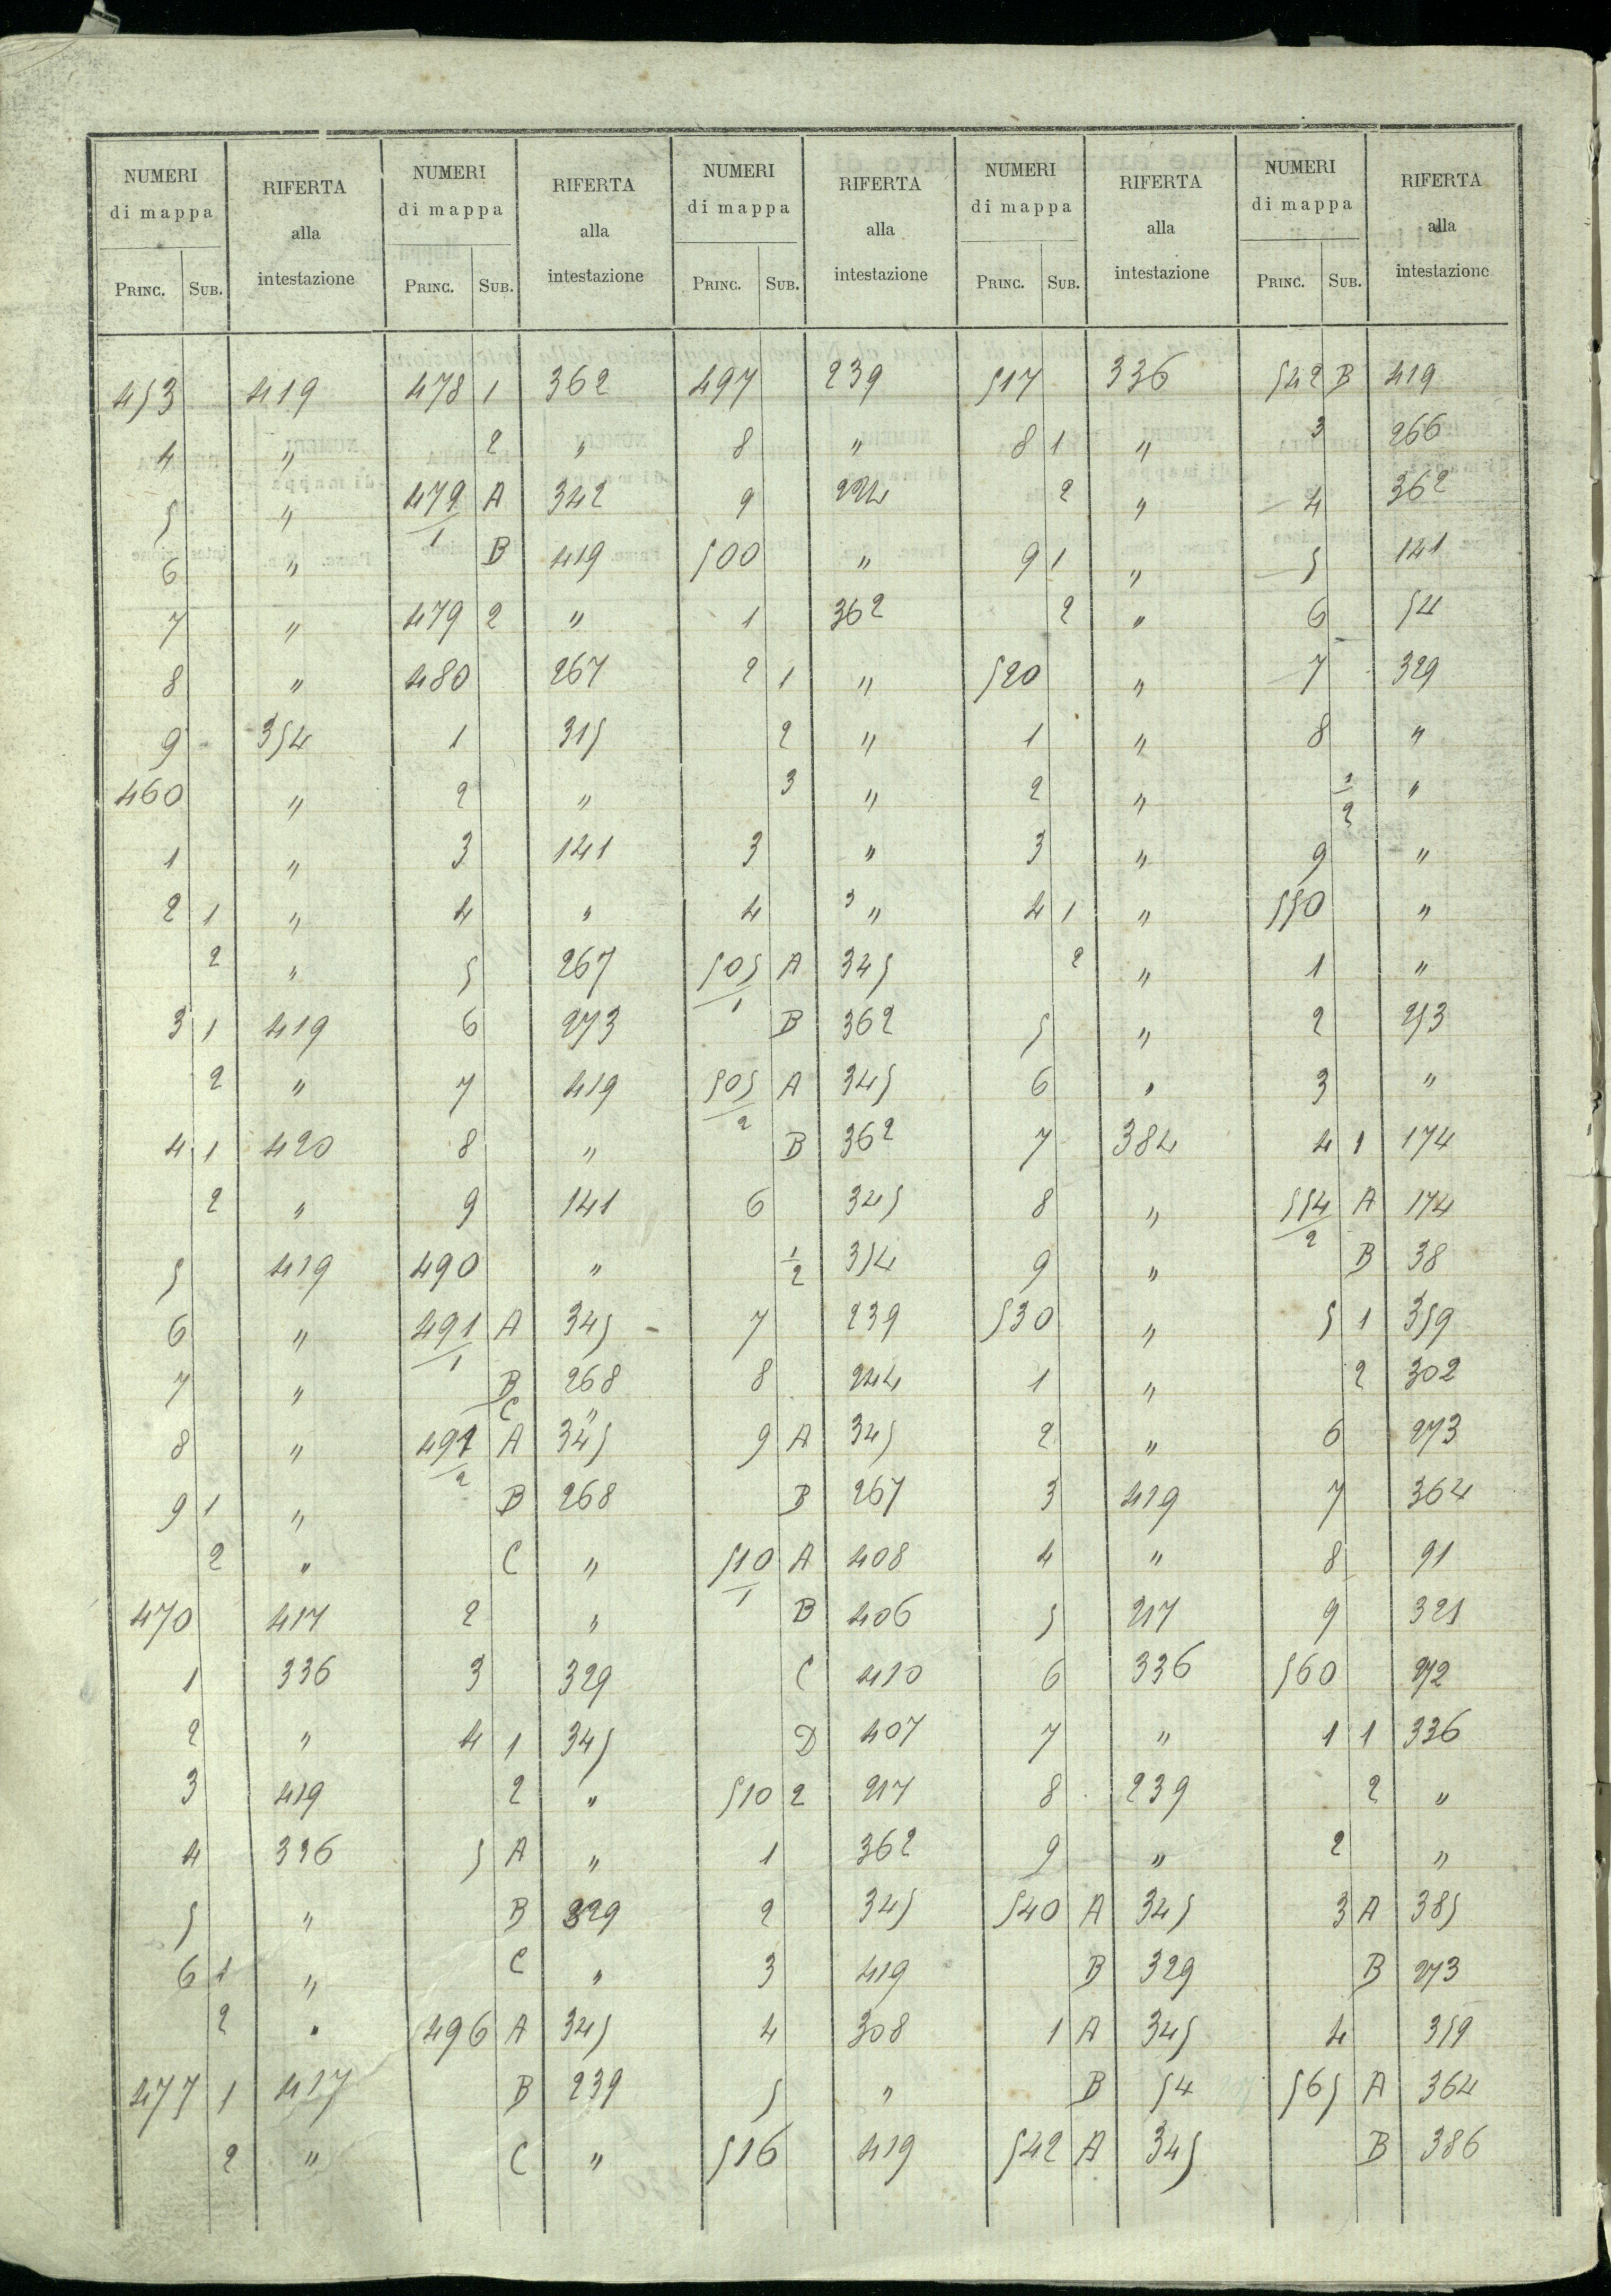 NUMERI di mappa RIFERTA alla intestazione NUMERI di mappa RIFERTA alla intestazione NUMERI di mappa RIFERTA alla intestazione NUMERI di mappa RIFERTA alla intestazione NUMERI di mappa RIFERTA alla intestazione
PRINC. SUB. PRINC. SUB. PRINC. SUB. PRINC. SUB. PRINC. SUB.
453 419 478 1 362 497 239 517 336 542 B 419
4 " 2 " 8 " 8 1 " 3 266
5 " 479/1 A 342 9 224 2 " 4 362
6 " B 419 500 " 9 1 " 5 141
7 " 479 2 " 1 362 2 " 6 54
8 " 480 267 2 1 " 520 " 7 329
9 354 1 315 2 " 1 " 8 "
460 " 2 " 3 " 2 " 1/2 "
1 " 3 141 3 " 3 " 9 "
2 1 " 4 " 4 " 4 1 " 550 "
2 " 5 267 505/1 A 345 2 " 1 "
3 1 419 6 273 B 362 5 " 2 253
2 " 7 419 505/2 A 345 6 " 3 "
4 1 420 8 " B 362 7 384 4 1 174
2 " 9 141 6 345 8 " 554/2 A 174
5 419 490 " 1/2 354 9 " B 38
6 " 491/1 A 345 7 239 530 " 5 1 359
7 " B 268 8 244 1 " 2 302
C "
8 " 491/2 A 345 9 A 345 2 " 6 273
9 1 " B 268 B 267 3 419 7 364
2 " C " 510/1 A 408 4 " 8 91
470 417 2 " B 406 5 217 9 321
1 336 3 329 C 410 6 336 560 272
2 " 4 1 345 D 407 7 " 1 1 336
3 419 2 " 510 2 217 8 239 2 "
4 326 5 A " 1 362 9 " 2 "
5 " B 329 2 345 540 A 345 3 A 385
6 1 " C " 3 419 B 329 B 273
2 " 496 A 345 4 308 1 A 345 4 359
477 1 417 B 239 5 " B 54 565 A 364
2 " C " 516 419 542 A 345 B 386